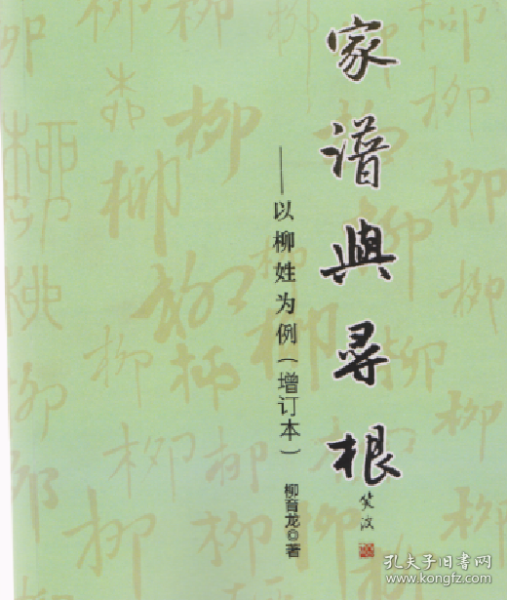 家譜與尋根
——以柳姓为例(增订本)
柳育龙◎著
孔夫子旧书网
www.kongfz.com